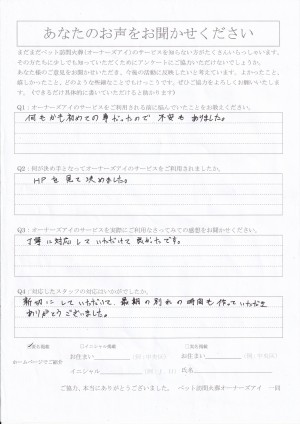 あなたのお声をお聞かせください
まだまだペット訪問火葬(オーナーズアイ)のサービスを知らない方がたくさんいらっしゃいます。
その方たちに少しでも知っていただくためにアンケートにご協力いただけないでしょうか。
あなた様のご意見をお聞かせいただき、今後の活動に反映したいと考えています。よかったこと、
嬉しかったこと、どのような些細なことでもけっこうです。ぜひご協力をよろしくお願いいたしま
す。(できるだけ具体的に書いていただけると助かります。)
Q1:オーナーズアイのサービスをご利用される前に悩んでいたことをお教えください。
何もかも初めての事だったので 不安も ありました。
Q2:何が決め手となってオーナーズアイのサービスをご利用されましたか。
HPを見て決めました。
Q3:オーナーズアイのサービスを実際にご利用なさってみての感想をお聞かせください。
丁寧に対応して いただけて 良かったです。
Q4:対応したスタッフの対応はいかがでしたか。
親切に していただいて、最期の別れの時間も 作って いただき
ありがとうございました。
ホームページでご紹介
匿名掲載
イニシャル掲載
お住まい
イニシャル
実名掲載
お住まい
氏名
ご協力、本当にありがとうございました。 ペット訪問火葬オーナーズアイ 一同